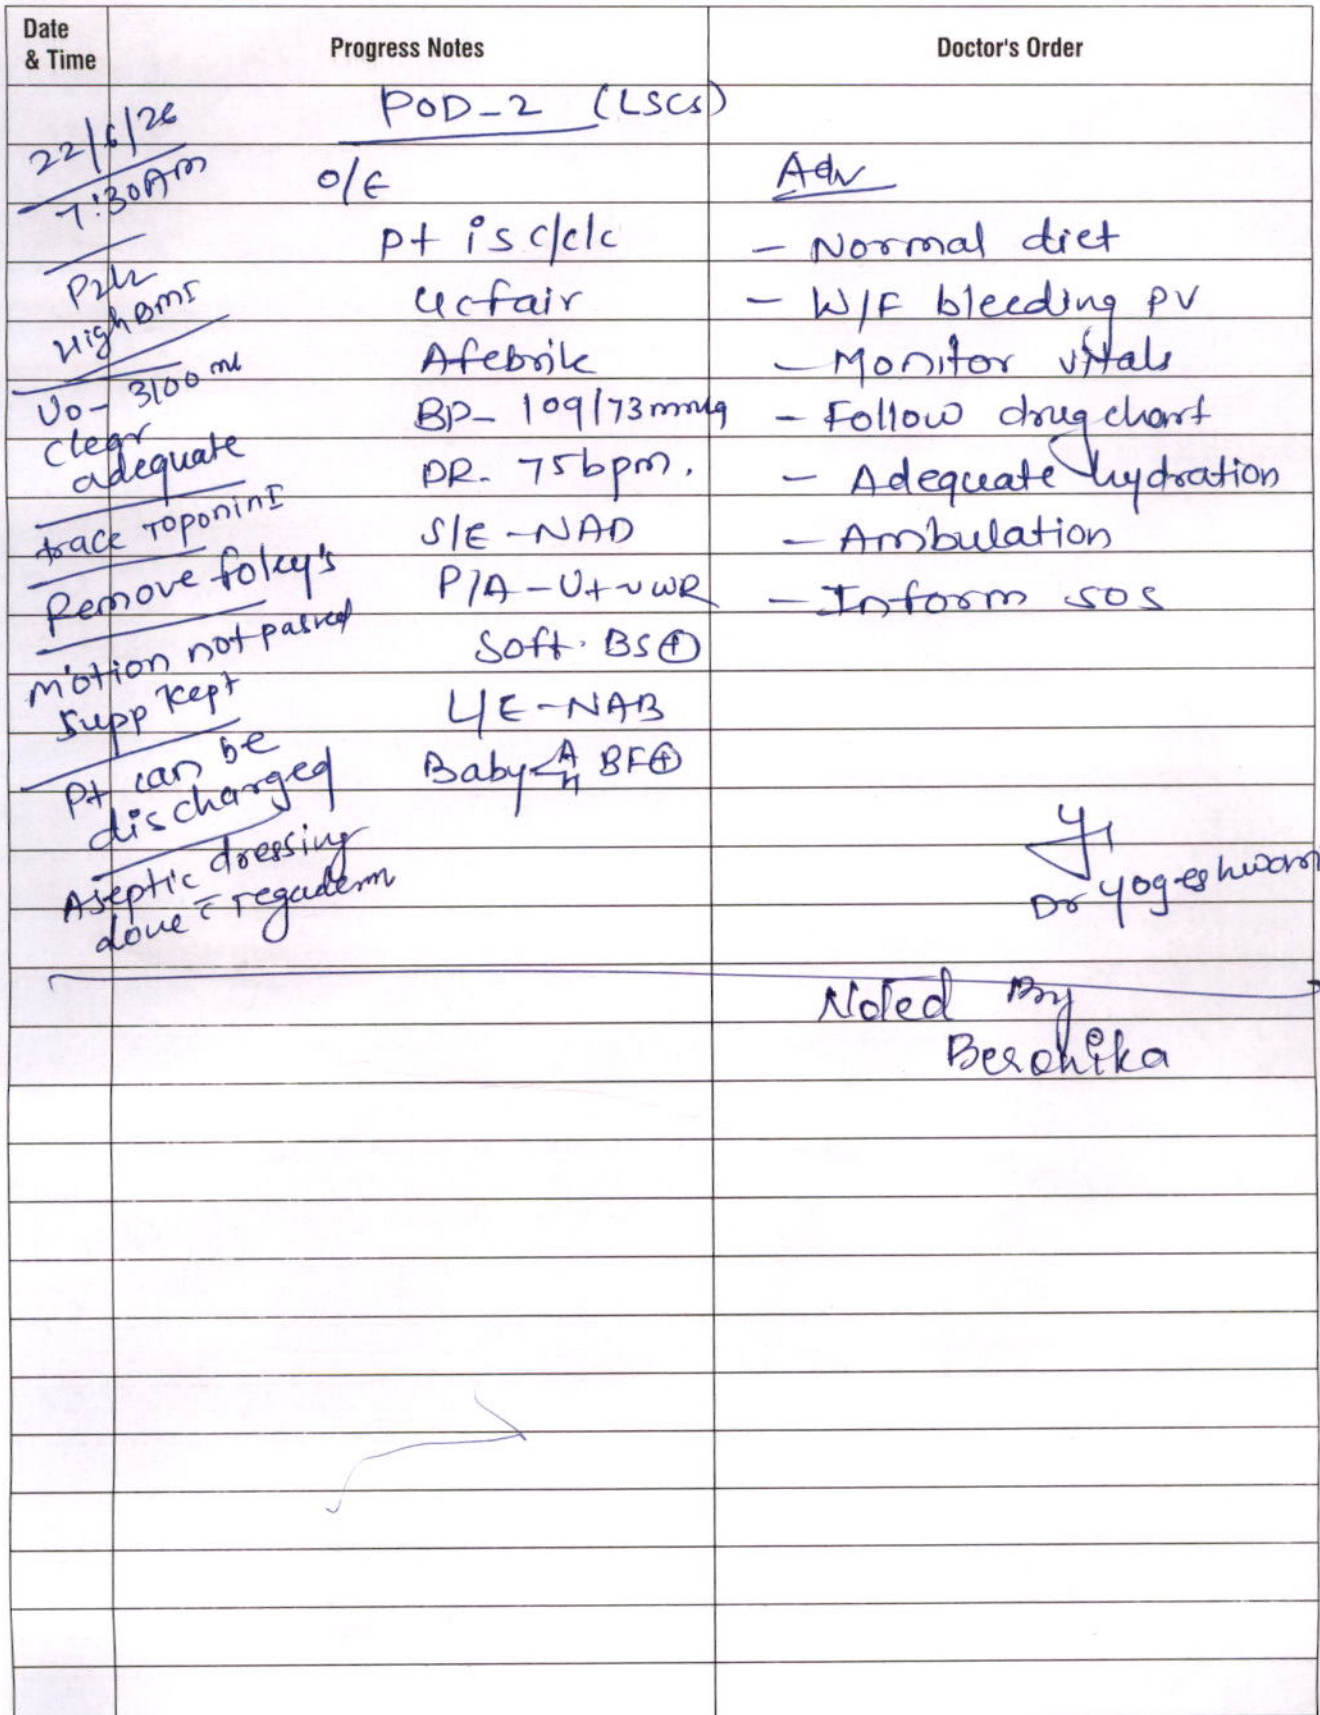 Date
& Time
Progress Notes
Doctor's Order
POD-2 (LSCS)
22/6/26
7:30Am
P2L2
High BMI
Uo- 3100 ml
clear
adequate
trace ToponinI
Remove foley's
motion not passed
supp kept
Pt can be
discharged
Aseptic dressing
done c̄ regaderm
O/E
pt is c/c/c
Gc fair
Afebrile
BP- 109/73mmHg
PR- 75bpm.
S/E-NAD
P/A-Ut~WR
Soft. BS⊕
L/E-NAB
Baby< A H BF⊕
Adv
- Normal diet
- W/F bleeding PV
- Monitor vitals
- Follow drug chart
- Adequate hydration
- Ambulation
- Inform SOS
Dr Yogeshwari
Noted By
Beronika